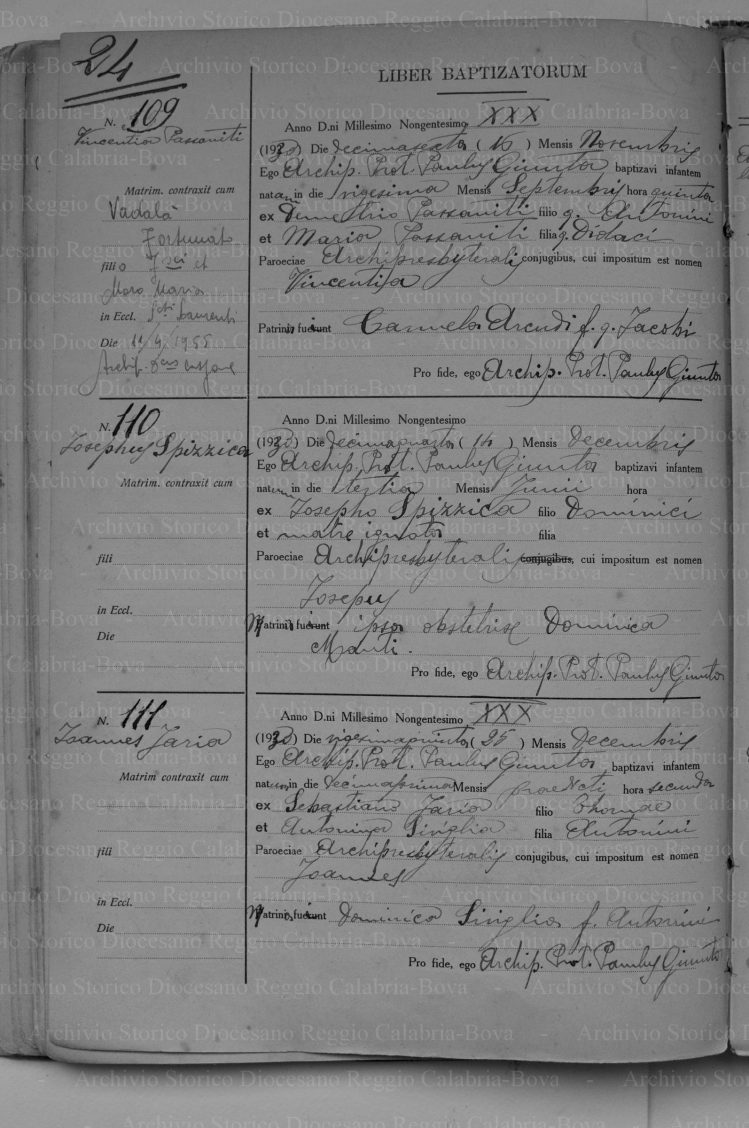 24
LIBER BAPTIZATORUM
N. 109
Vincentia Passaniti
Matrim. contraxit cum
Vadalà
Fortunato
filio
Moro Maria
in Eccl. Laurenti
Die 11/9/1955
Archip.
Anno D.ni Millesimo Nongentesimo XXX
(1930) Die decimasexta (16) Mensis Novembris
Ego Archip. Prot. Paulus Giunta baptizavi infantem
natam in die vigesima Mensis Septembris hora quinta
ex Demetrio Passaniti filio q. Antonini
et Maria Passaniti filia q. Didaci
Paroeciae Archipresbyteralis conjugibus, cui impositum est nomen
Vincentia
Patrini fuerunt Carmela Arcudi f. q. Jacobi
Pro fide, ego Archip. Prot. Paulus Giunta
N. 110
Josephus Spizzica
Matrim. contraxit cum
fili
in Eccl.
Die
Anno D.ni Millesimo Nongentesimo
(1930) Die decimaquarta (14) Mensis Decembris
Ego Archip. Prot. Paulus Giunta baptizavi infantem
natum in die tertia Mensis Junii hora
ex Josepho Spizzica filio Dominici
et matre ignota filia
Paroeciae Archipresbyteralis conjugibus, cui impositum est nomen
Josephus
Matrini fuerunt ipsa obstetrix Dominica
Manti.
Pro fide, ego Archip. Prot. Paulus Giunta
N. 111
Joannes Jaria
Matrim contraxit cum
fili
in Eccl.
Die
Anno D.ni Millesimo Nongentesimo XXX
(1930) Die vigesimaquinta (25) Mensis Decembris
Ego Archip. Prot. Paulus Giunta baptizavi infantem
natum in die Mensis hora secunda
ex Sebastiano Jaria filio Thomae
et Antonina Siviglia filia Antonini
Paroeciae Archipresbyteralis conjugibus, cui impositum est nomen
Joannes
Matrini fuerunt Dominica Siviglia f. Antonini
Pro fide, ego Archip. Prot. Paulus Giunta
Archivio Storico Diocesano Reggio Calabria-Bova